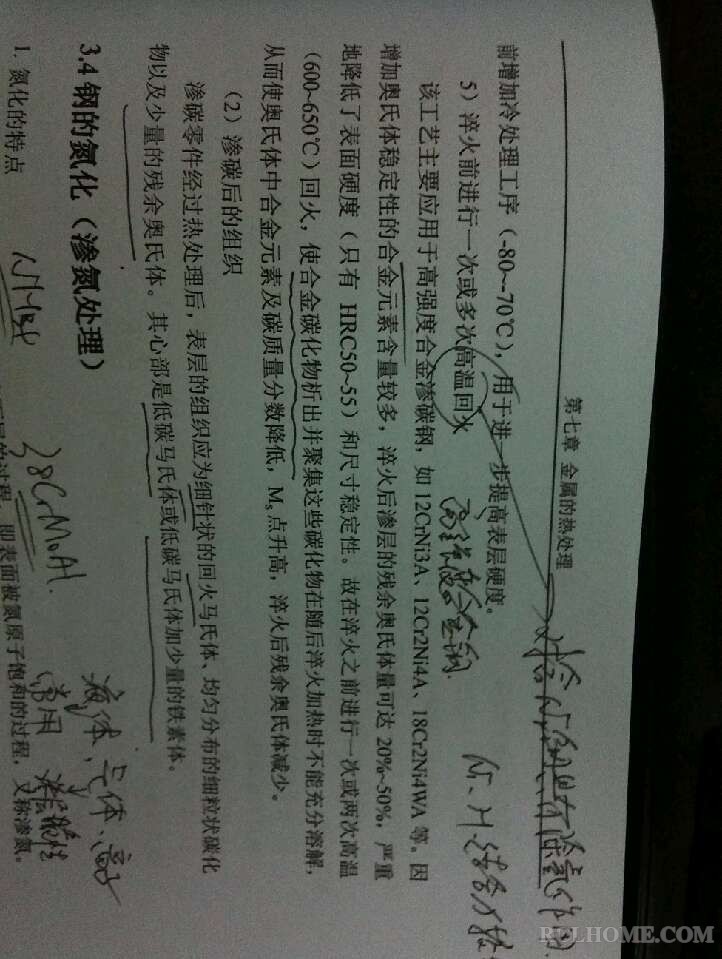 第七章 金属的热处理
前增加冷处理工序（-80~-70℃），用于进一步提高表层硬度。
5）淬火前进行一次或多次高温回火
高强度合金钢
该工艺主要应用于高强度合金渗碳钢，如 12CrNi3A、12Cr2Ni4A、18Cr2Ni4WA 等。因
增加奥氏体稳定性的合金元素含量较多，淬火后渗层的残余奥氏体量可达 20%~50%，严重
地降低了表面硬度（只有 HRC50~55）和尺寸稳定性。故在淬火之前进行一次或两次高温
（600~650℃）回火，使合金碳化物析出并聚集这些碳化物在随后淬火加热时不能充分溶解，
从而使奥氏体中合金元素及碳质量分数降低，Ms点升高，淬火后残余奥氏体减少。
（2）渗碳后的组织
渗碳零件经过热处理后，表层的组织应为细针状的回火马氏体、均匀分布的细粒状碳化
物以及少量的残余奥氏体。其心部是低碳马氏体或低碳马氏体加少量的铁素体。
3.4 钢的氮化（渗氮处理）
38CrMoAl.
液体、气体、离子
常用
脆性
1. 氮化的特点
即表面被氮原子饱和的过程，又称渗氮。
RCLHOME.COM